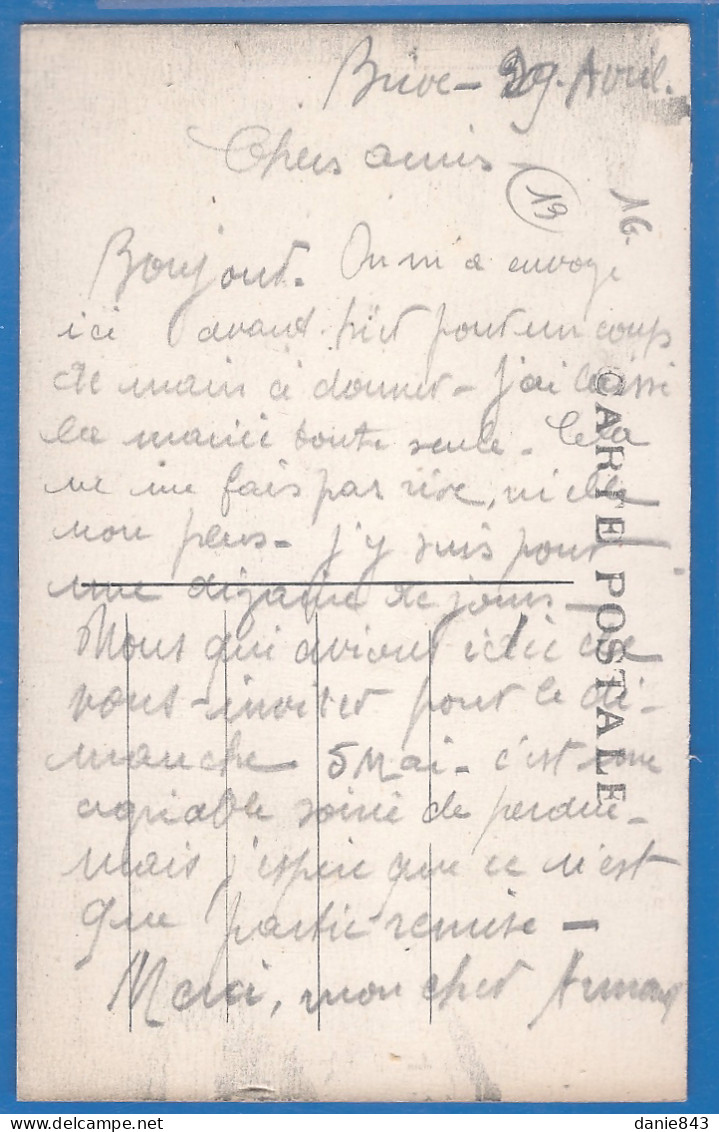 Brive - 29 Avril.
Chers amis
19
16.
Bonjour. On m'a envoyé
ici avant hier pour un coup
de main à donner - j'ai laissé
la mariée toute seule. Cela
ne me fais pas rire, ni elle
non plus - j'y suis pour
une dizaine de jours
Nous qui avions idée de
vous inviter pour le di-
manche 5 Mai - c'est une
agréable soirée de perdue -
mais j'espère que ce n'est
que partie remise -
Merci, mon cher Armand
CARTE POSTALE
danie843